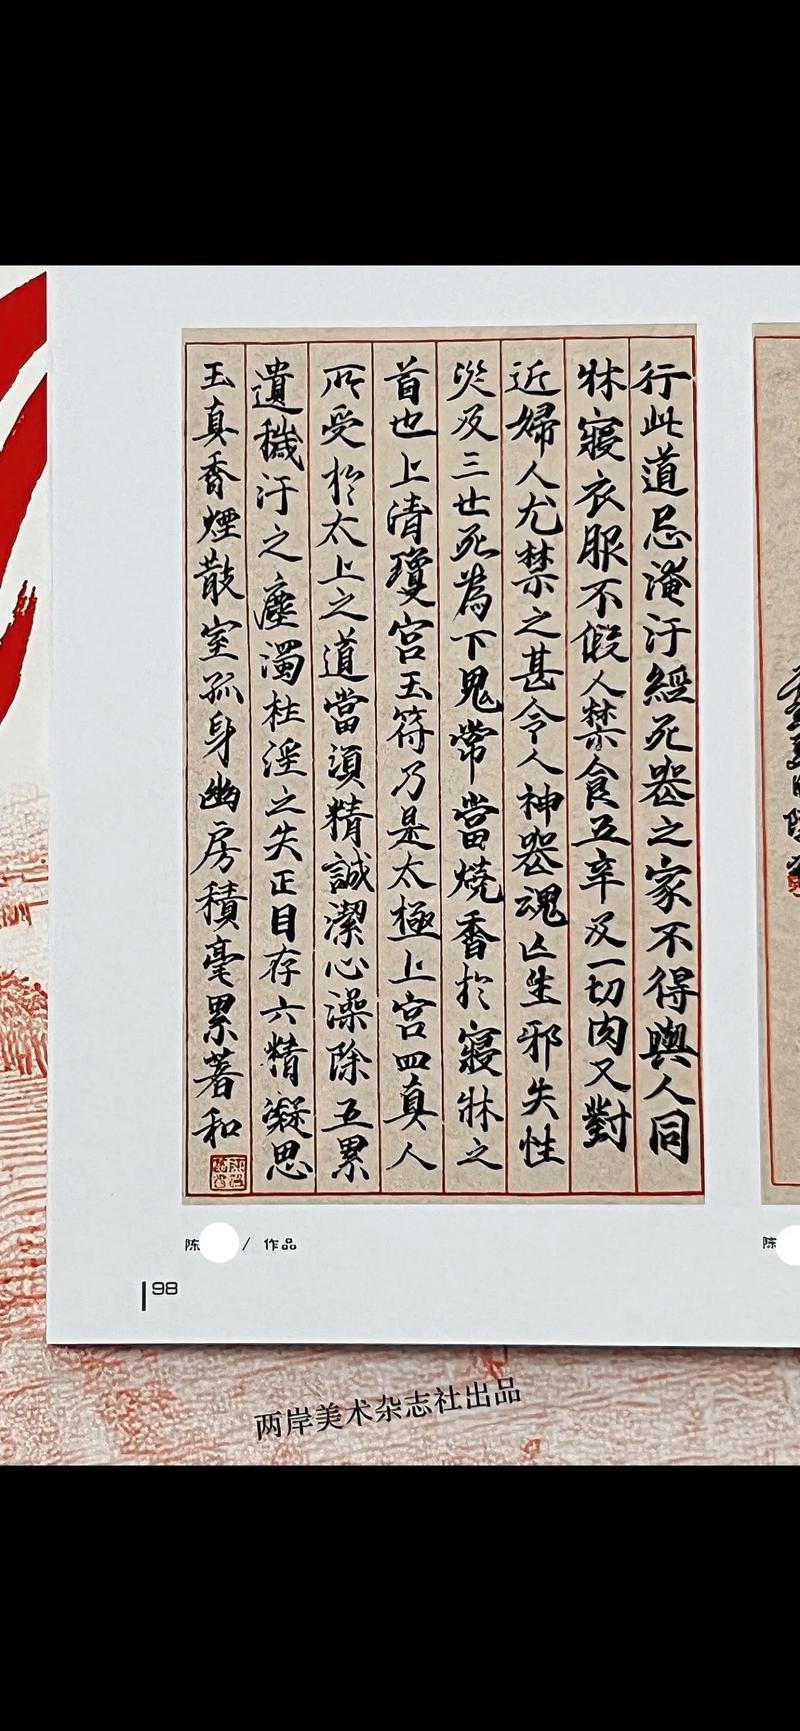 行此道忌淹汙經死喪之家不得與人同
牀寢衣服不假人禁食五辛及一切肉又對
近婦人尤禁之甚令人神喪魂亡生邪失性
災及三世死為下鬼常當燒香於寢牀之
首也上清瓊宮玉符乃是太極上宮四真人
所受於太上之道當須精誠潔心澡除五累
遺穢汙之塵濁杜淫之失正目存六精凝思
玉真香煙散室孤身幽房積毫累著和
陈 / 作品
陈
98
两岸美术杂志社出品